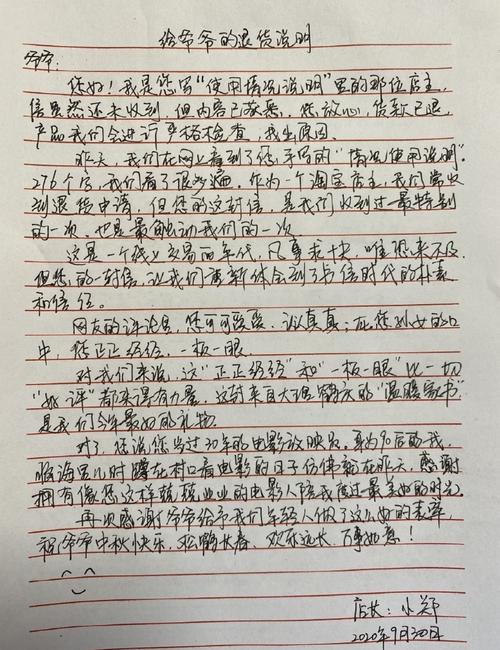 给爷爷的退货说明
爷爷：
您好！我是您写“使用情况说明”里的那位店主，
信虽然还未收到，但内容已获悉，您放心，货款已退，
产品我们会进行严格检查，找出原因。
昨天，我们在网上看到了您手写的“情况使用说明”。
276个字，我们看了很多遍，作为一个淘宝店主，我们常收
到退货申请，但您的这封信，是我们收到过最特别
的一次，也是最触动我们的一次。
这是一个线上交易的年代，凡事求快，唯恐来不及，
但您的一封信，让我们重新体会到了书信时代的朴素
和信任。
网友的评论里，您可可爱爱、认认真真；在您孙女的口
中，您正正经经，一板一眼。
对我们来说，这“正正经经”和“一板一眼”比一切
“好评”都来得有力量，这封来自大理鹤庆的“温暖家书”
是我们今年最好的礼物。
对了，您说您当过30年的电影放映员。身为90后的我，
临海里儿时蹲在村口看电影的日子仿佛就在昨天，感谢
拥有像您这样兢兢业业的电影人陪我度过最美好的时光。
再次感谢爷爷给予我们年轻人做了这么好的表率
祝爷爷中秋快乐，松鹤长春、欢乐远长、万事如意！
店长：小郑
2020年9月30日